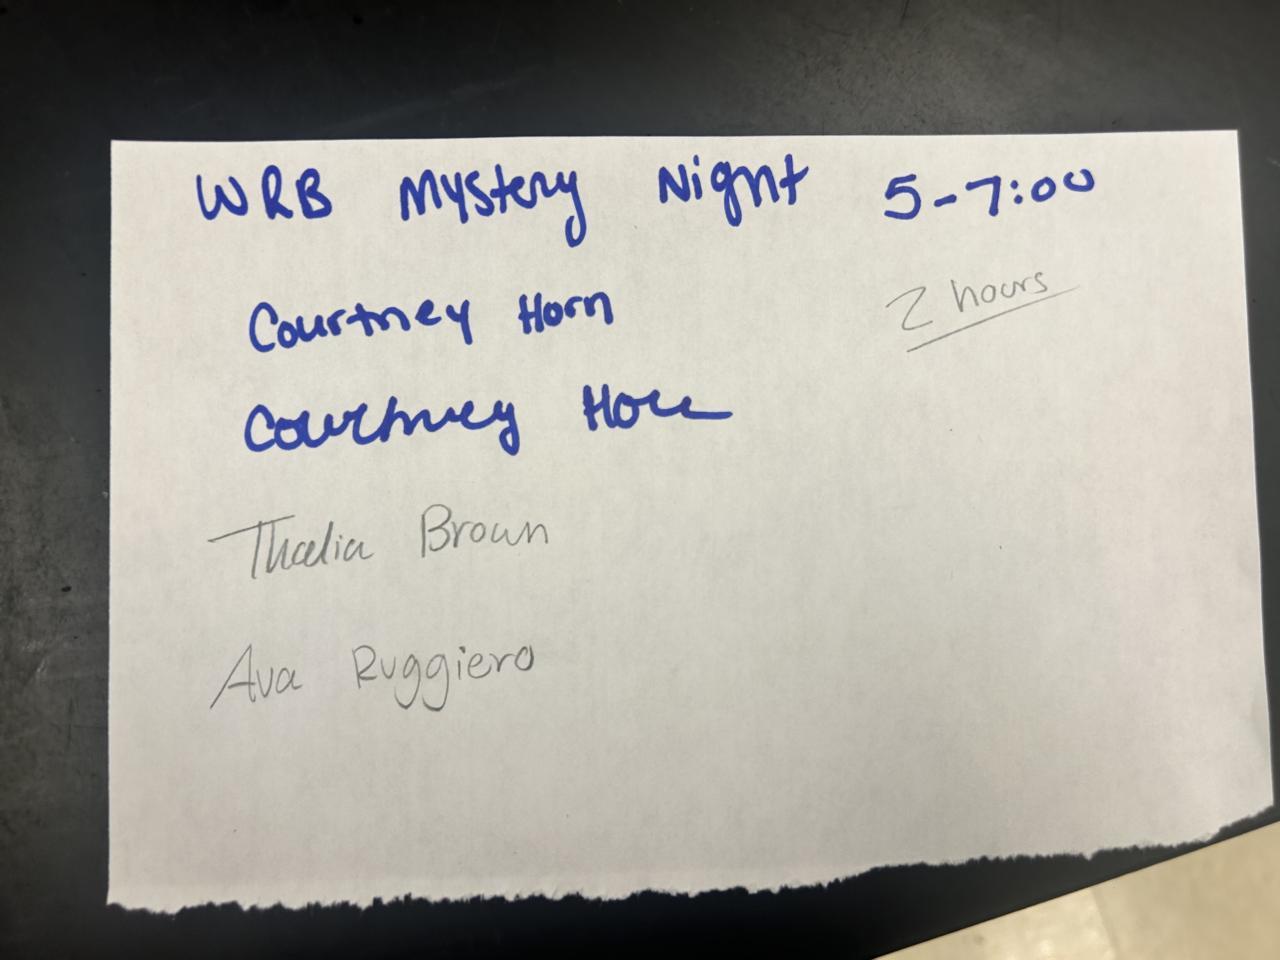 WRB Mystery Night 5-7:00
2 hours
Courtney Horn
Courtney Horn
Thalia Brown
Ava Ruggiero